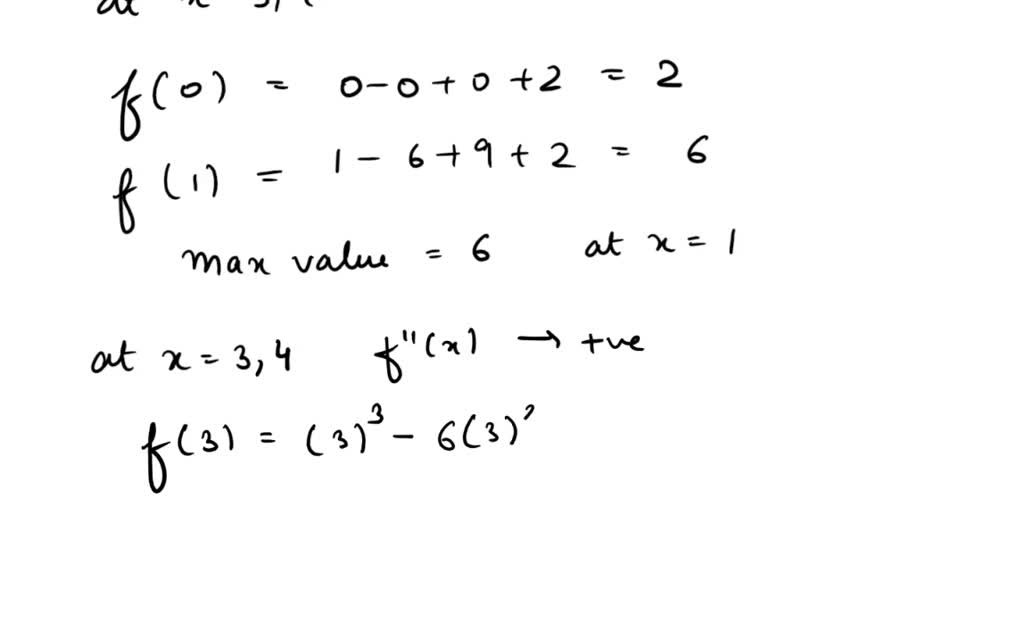 f(0) = 0-0+0+2 = 2
f(1) = 1-6+9+2 = 6
max value = 6 at x = 1
at x = 3,4 f"(x) → +ve
f(3) = (3)³ - 6(3)²